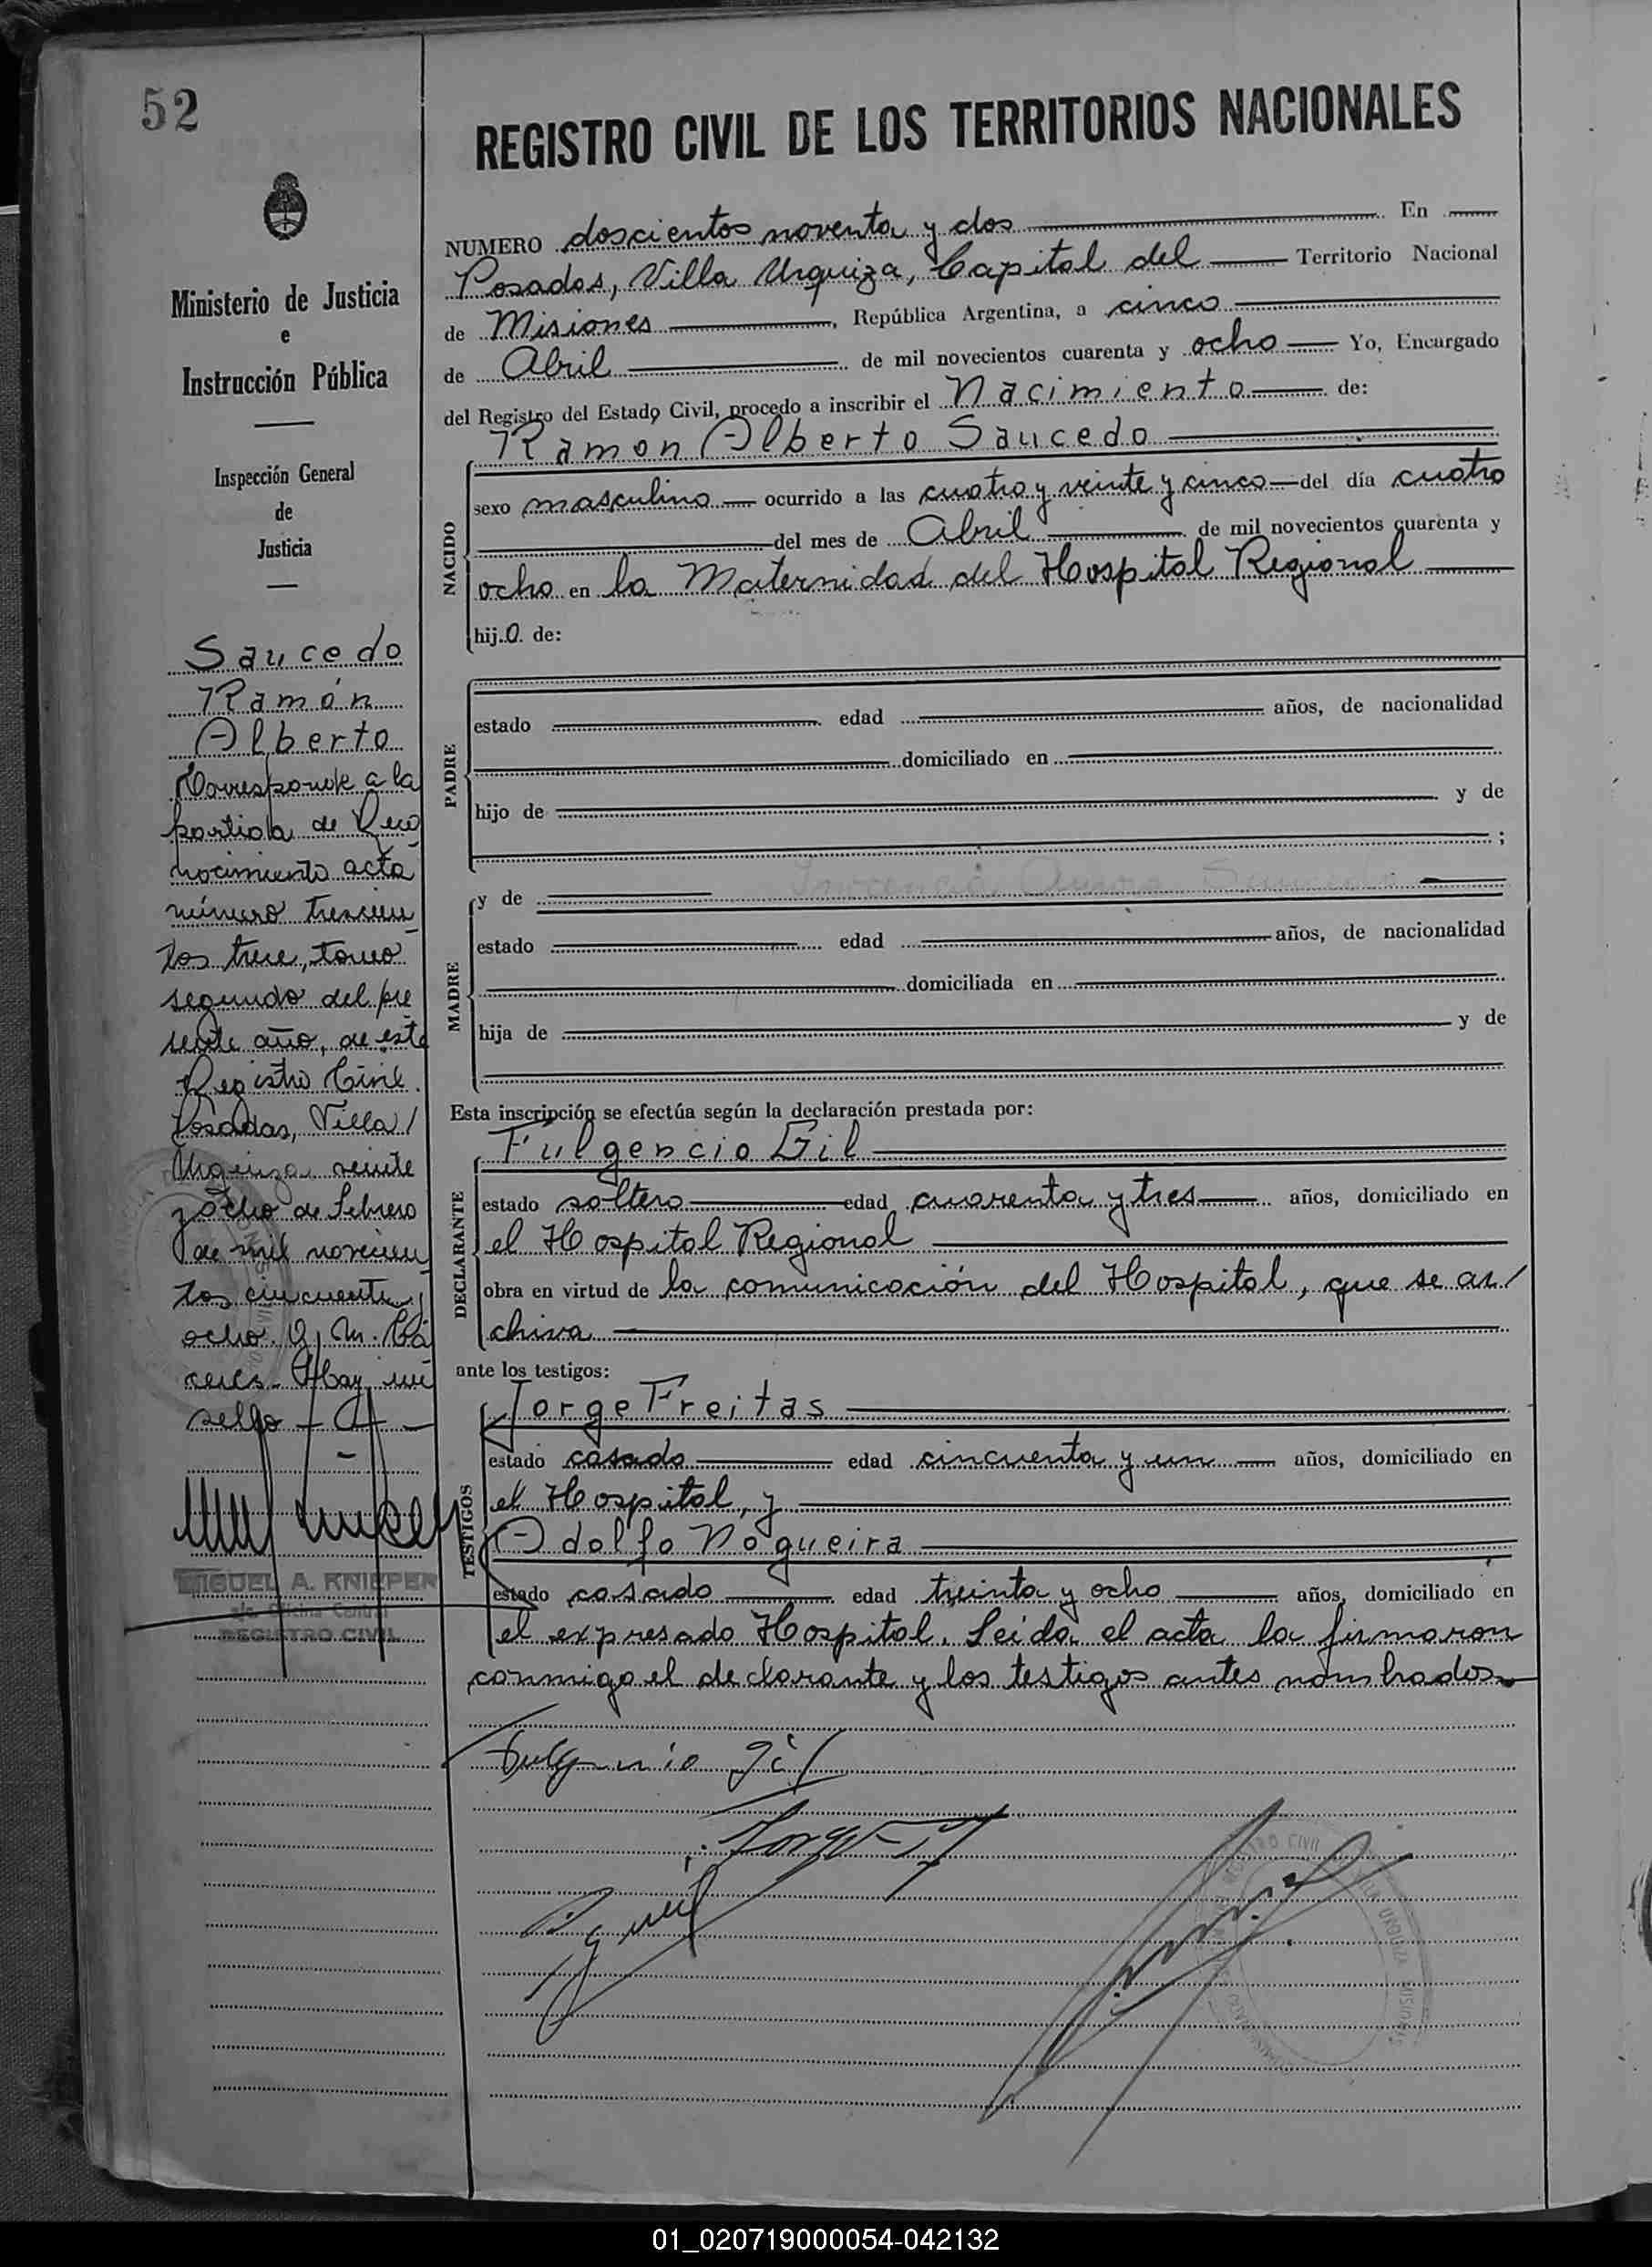 52
REGISTRO CIVIL DE LOS TERRITORIOS NACIONALES
Ministerio de Justicia
e
Instrucción Pública
Inspección General
de
Justicia
Saucedo
Ramón
Alberto
Corresponde a la
partida de Reco
nocimiento acta
número trescien
tos trece, tomo
segundo del pre
sente año, de este
Registro Civil.
Posadas, Villa
Urquiza veinte
y ocho de Febrero
de mil novecien
tos cincuenta y
ocho. Hay un
sello
MIGUEL A. KNIEPER
Oficina Central
REGISTRO CIVIL
NUMERO doscientos noventa y dos En
Posadas, Villa Urquiza, Capital del Territorio Nacional
de Misiones, República Argentina, a cinco
de Abril de mil novecientos cuarenta y ocho Yo, Encargado
del Registro del Estado Civil, procedo a inscribir el Nacimiento de:
Ramon Alberto Saucedo
NACIDO
sexo masculino ocurrido a las cuatro y veinte y cinco del día cuatro
del mes de Abril de mil novecientos cuarenta y
ocho en la Maternidad del Hospital Regional
hijo de:
PADRE
estado edad años, de nacionalidad
domiciliado en
hijo de y de
;
MADRE
y de
estado edad años, de nacionalidad
domiciliada en
hija de y de
Esta inscripción se efectúa según la declaración prestada por:
DECLARANTE
Fulgencio Gil
estado soltero edad cuarenta y tres años, domiciliado en
el Hospital Regional
obra en virtud de la comunicación del Hospital, que se ar/
chiva
ante los testigos:
TESTIGOS
Jorge Freitas
estado casado edad cincuenta y un años, domiciliado en
el Hospital, y
Adolfo Nogueira
estado casado edad treinta y ocho años, domiciliado en
el expresado Hospital. Leida el acta la firmaron
conmigo el declarante y los testigos antes nombrados.
Fulgencio Gil
REGISTRO CIVIL VILLA URQUIZA MISIONES
01_020719000054-042132